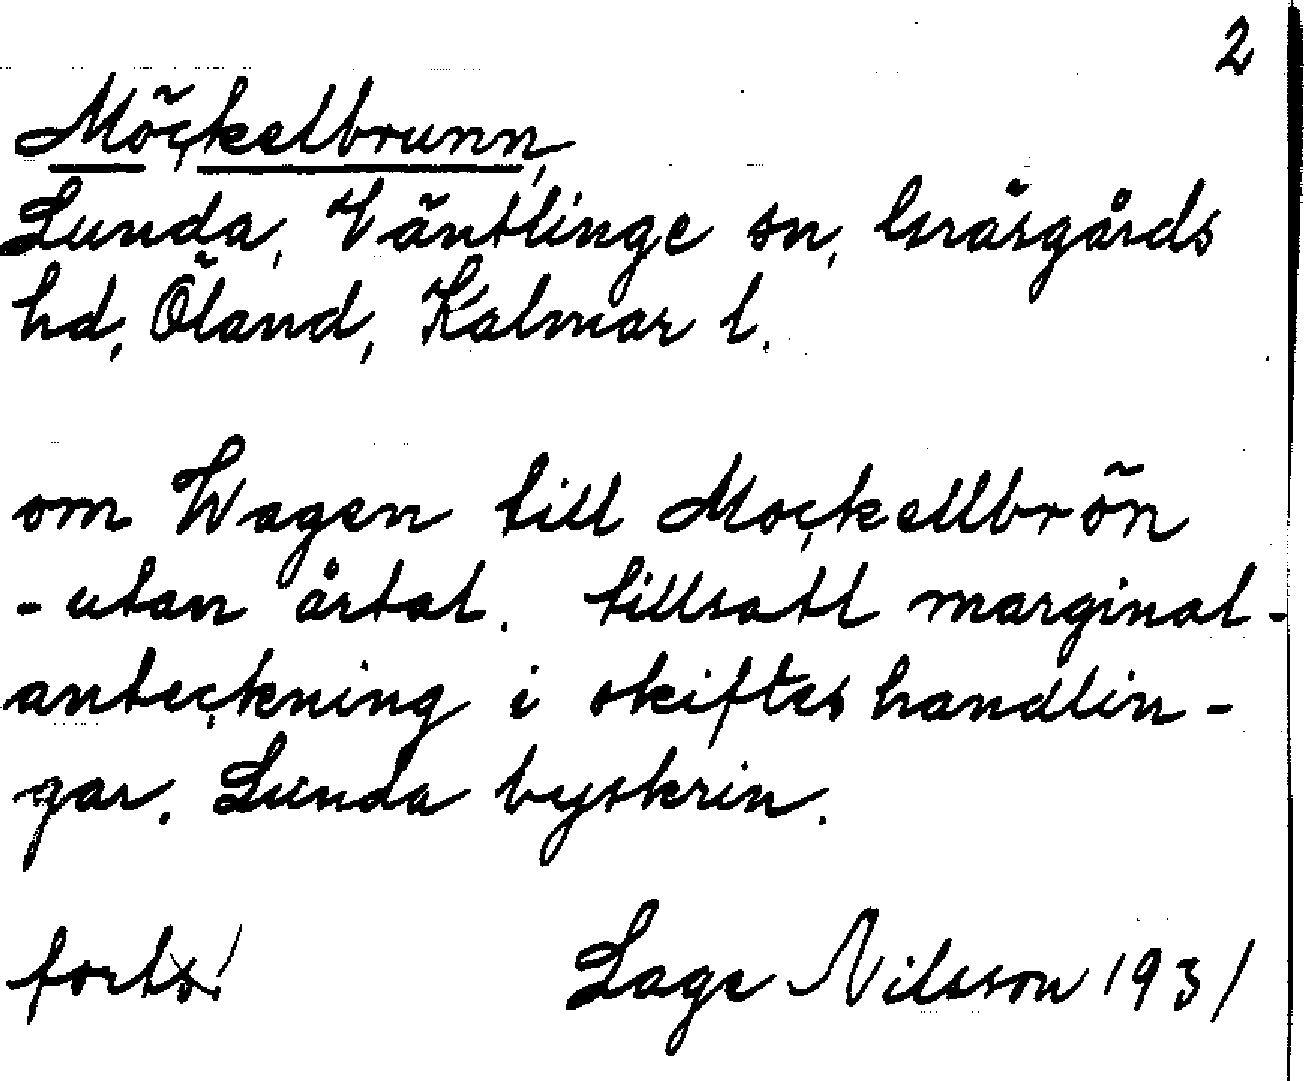 2
Möckelbrunn,
Lunda, Väntlinge sn, Gräsgårds
hd, Öland, Kalmar l.
om Wägen till Mockellbrön
- utan årtal. tillsatt marginal-
anteckning i skifteshandlin-
gar. Lunda byskrin.
forts! Lage Nilsson 1931